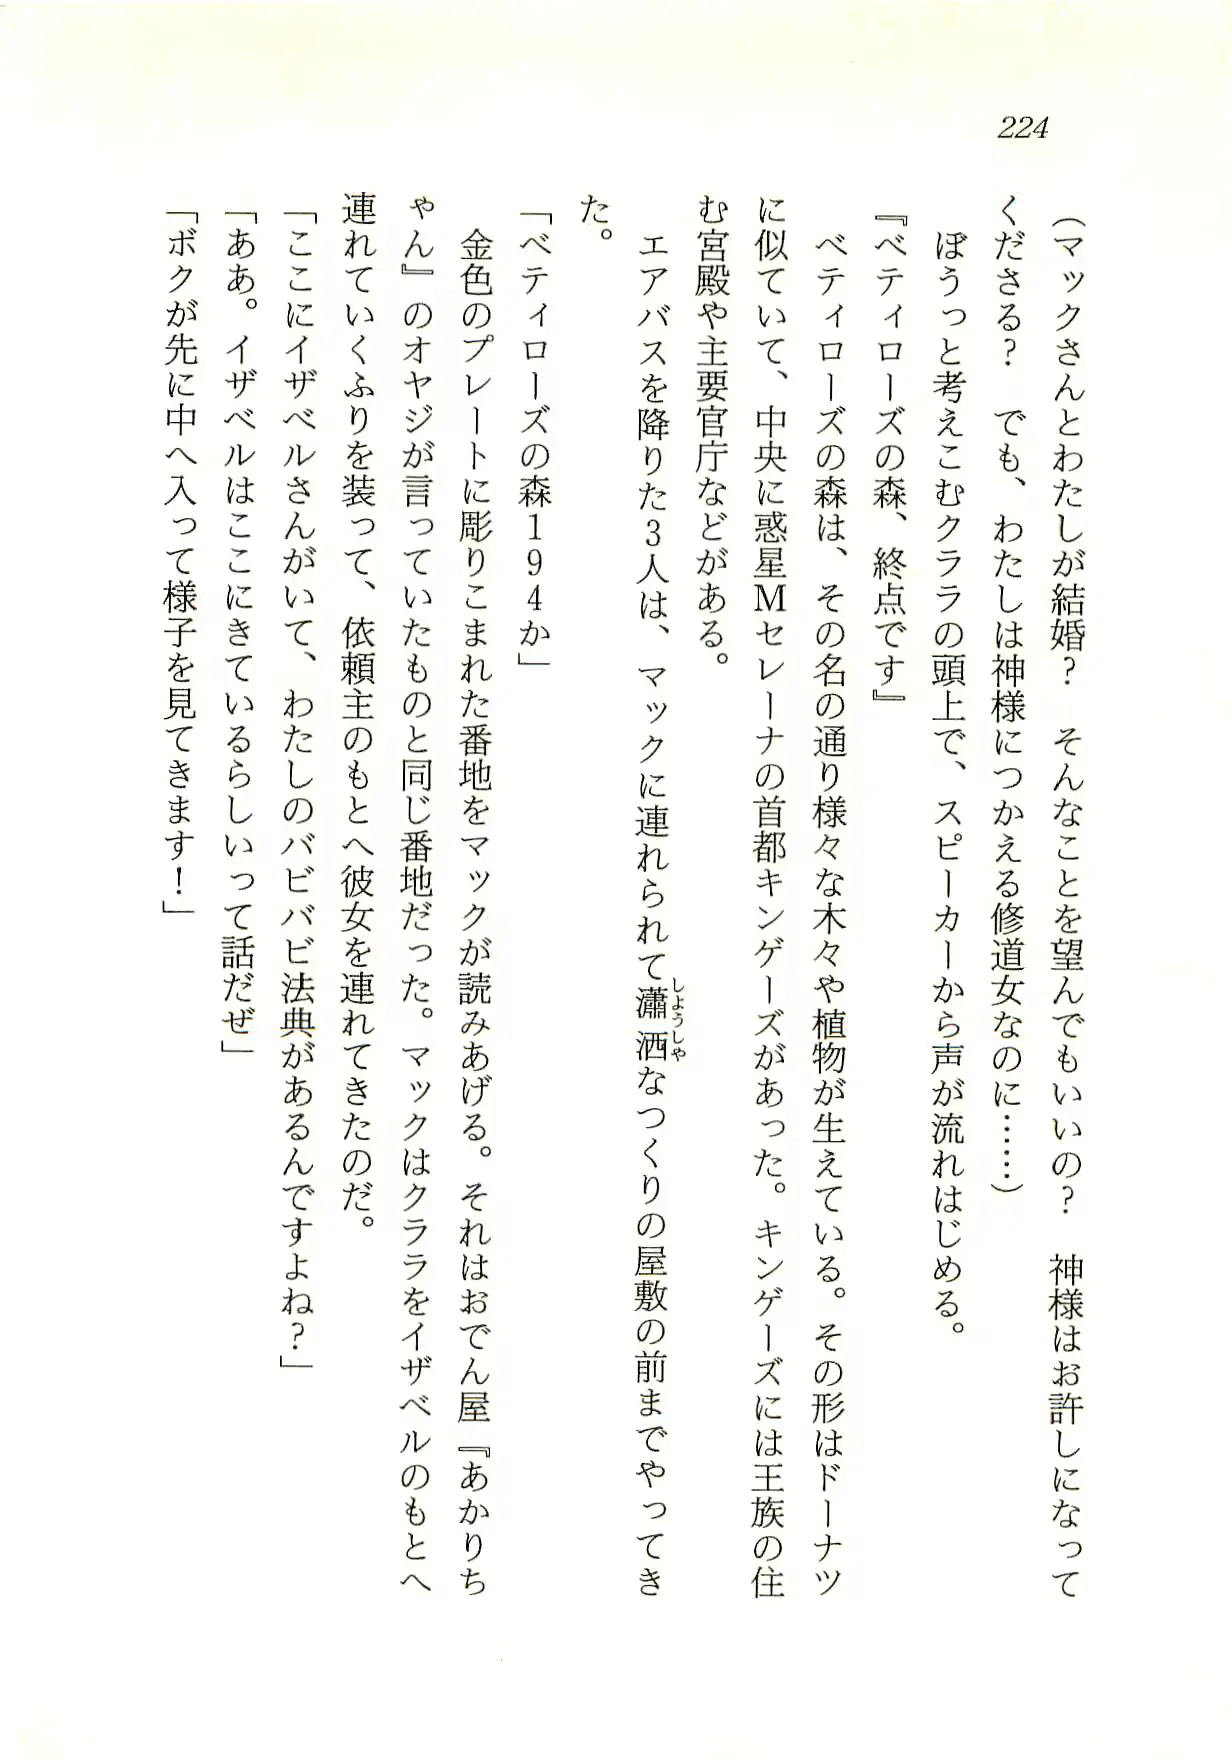 224
（マックさんとわたしが結婚？　そんなことを望んでもいいの？　神様はお許しになって
くださる？　でも、わたしは神様につかえる修道女なのに……）
　ぼうっと考えこむクララの頭上で、スピーカーから声が流れはじめる。
『ベティローズの森、終点です』
　ベティローズの森は、その名の通り様々な木々や植物が生えている。その形はドーナツ
に似ていて、中央に惑星Ｍセレーナの首都キンゲーズがあった。キンゲーズには王族の住
む宮殿や主要官庁などがある。
　エアバスを降りた３人は、マックに連れられて瀟洒なつくりの屋敷の前までやってき
しようしや
た。
「ベティローズの森１９４か」
　金色のプレートに彫りこまれた番地をマックが読みあげる。それはおでん屋『あかりち
ゃん』のオヤジが言っていたものと同じ番地だった。マックはクララをイザベルのもとへ
連れていくふりを装って、依頼主のもとへ彼女を連れてきたのだ。
「ここにイザベルさんがいて、わたしのバビバビ法典があるんですよね？」
「ああ。イザベルはここにきているらしいって話だぜ」
「ボクが先に中へ入って様子を見てきます！」